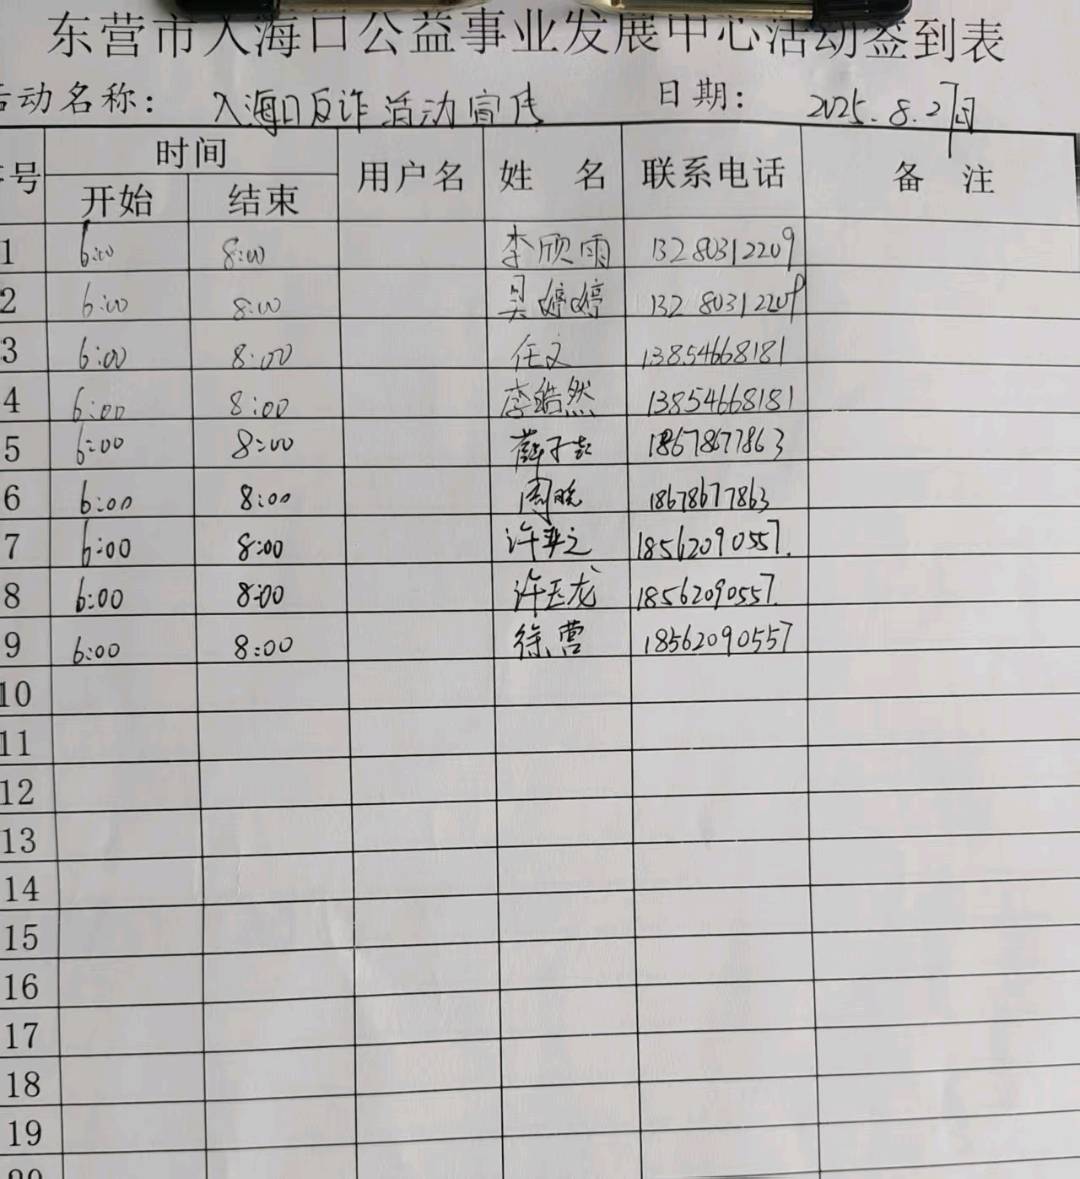 东营市入海口公益事业发展中心活动签到表
活动名称： 入海口反诈活动宣传 日期： 2025.8.27日
序号 时间 用户名 姓 名 联系电话 备 注
开始 结束
1 6:00 8:00 李欣雨 13280312209
2 6:00 8:00 吴婷婷 13280312209
3 6:00 8:00 任文 13854668181
4 6:00 8:00 李皓然 13854668181
5 6:00 8:00 薛子 18678677863
6 6:00 8:00 周晓 18678677863
7 6:00 8:00 许 之 18562090557.
8 6:00 8:00 许玉龙 18562090557.
9 6:00 8:00 徐营 18562090557
10
11
12
13
14
15
16
17
18
19
20